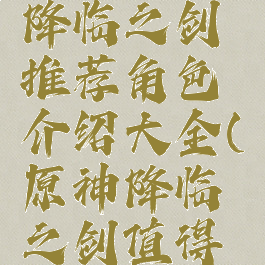 降临之剑
推荐角色
介绍大全(
原神降临
之剑值得